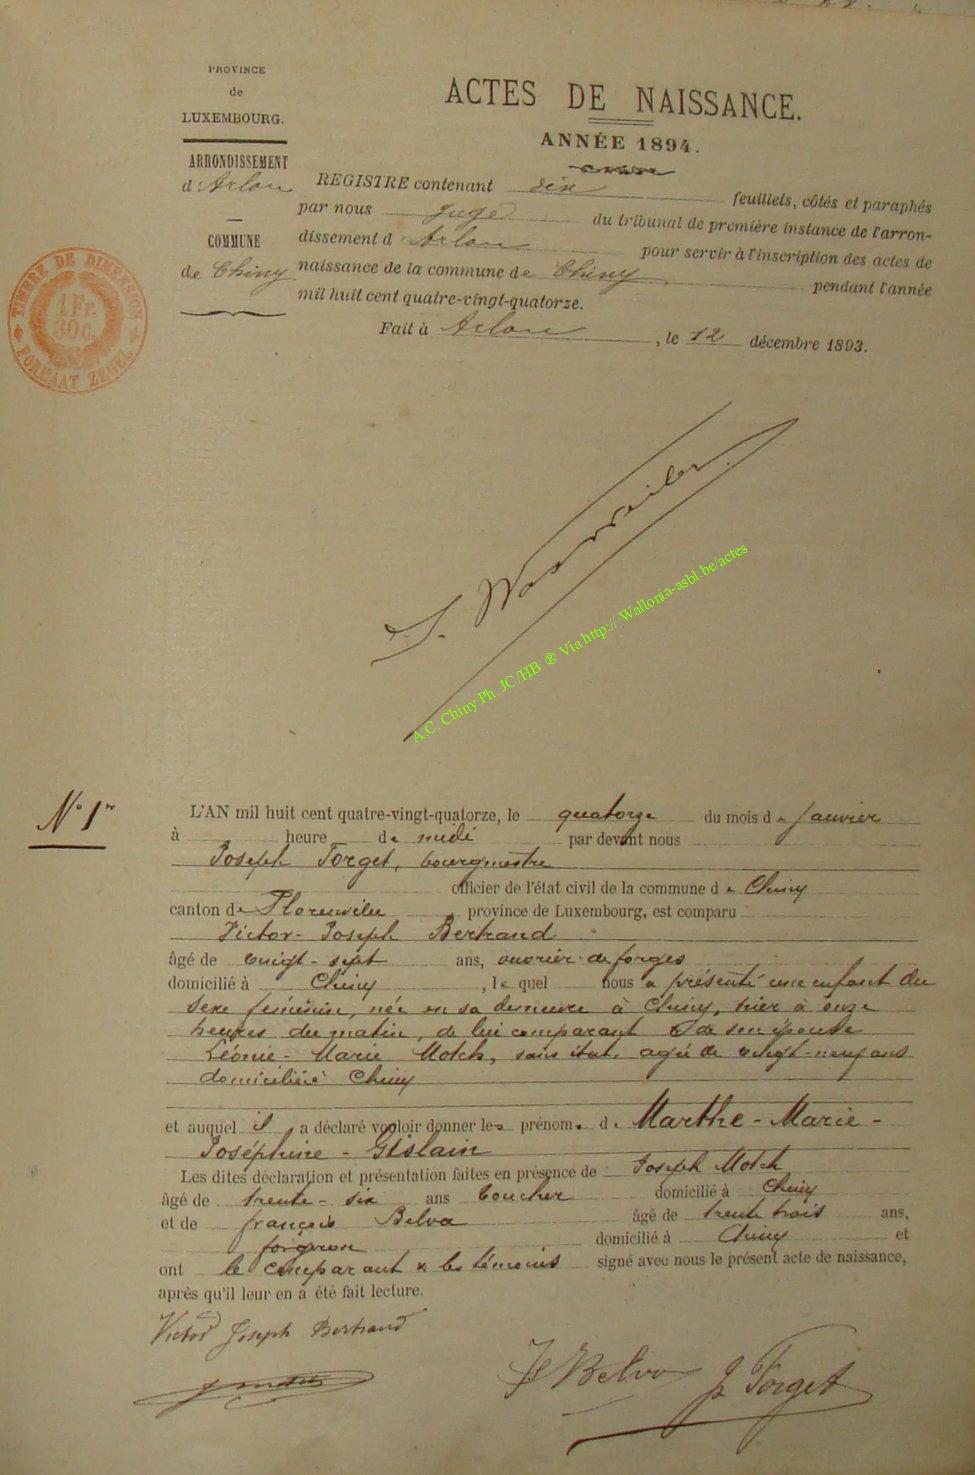 PROVINCE
de
LUXEMBOURG.
ARRONDISSEMENT
d'Arlon
COMMUNE
de Chiny
TIMBRE DE DIMENSION
1 Fr.
30 C.
FORMAAT ZEGEL
ACTES DE NAISSANCE.
ANNÉE 1894.
REGISTRE contenant dix feuillets, côtés et paraphés
par nous juge du tribunal de première instance de l'arron-
dissement d'Arlon pour servir à l'inscription des actes de
naissance de la commune de Chiny pendant l'année
mil huit cent quatre-vingt-quatorze.
Fait à Arlon, le 12 décembre 1893.
A.C. Chiny Ph. JC/HB ® Via http:// Wallonia-asbl.be/actes
N° 1er
L'AN mil huit cent quatre-vingt-quatorze, le quatorze du mois de janvier
à heure de midi par devant nous
Joseph Forget, bourgmestre
officier de l'état civil de la commune de Chiny
canton de Florenville, province de Luxembourg, est comparu
Victor-Joseph Bertrand
âgé de vingt-sept ans, ouvrier de forges
domicilié à Chiny, lequel nous a présenté une enfant du
sexe féminin, née en sa demeure à Chiny, hier à onze
heures du matin, de lui comparant & de son épouse
Léonie-Marie Motch, sans état, agée de vingt-neuf ans
domiciliée Chiny
et auquel il a déclaré vouloir donner les prénoms de Marthe-Marie-
Joséphine-Gislain
Les dites déclaration et présentation faites en présence de Joseph Motch
âgé de trente-six ans boucher domicilié à Chiny
et de françois Belva âgé de trente trois ans,
forgeron domicilié à Chiny et
ont le comparant & les témoins signé avec nous le présent acte de naissance,
après qu'il leur en a été fait lecture.
Victor Joseph Bertrand
J Motch
F Belva J Forget